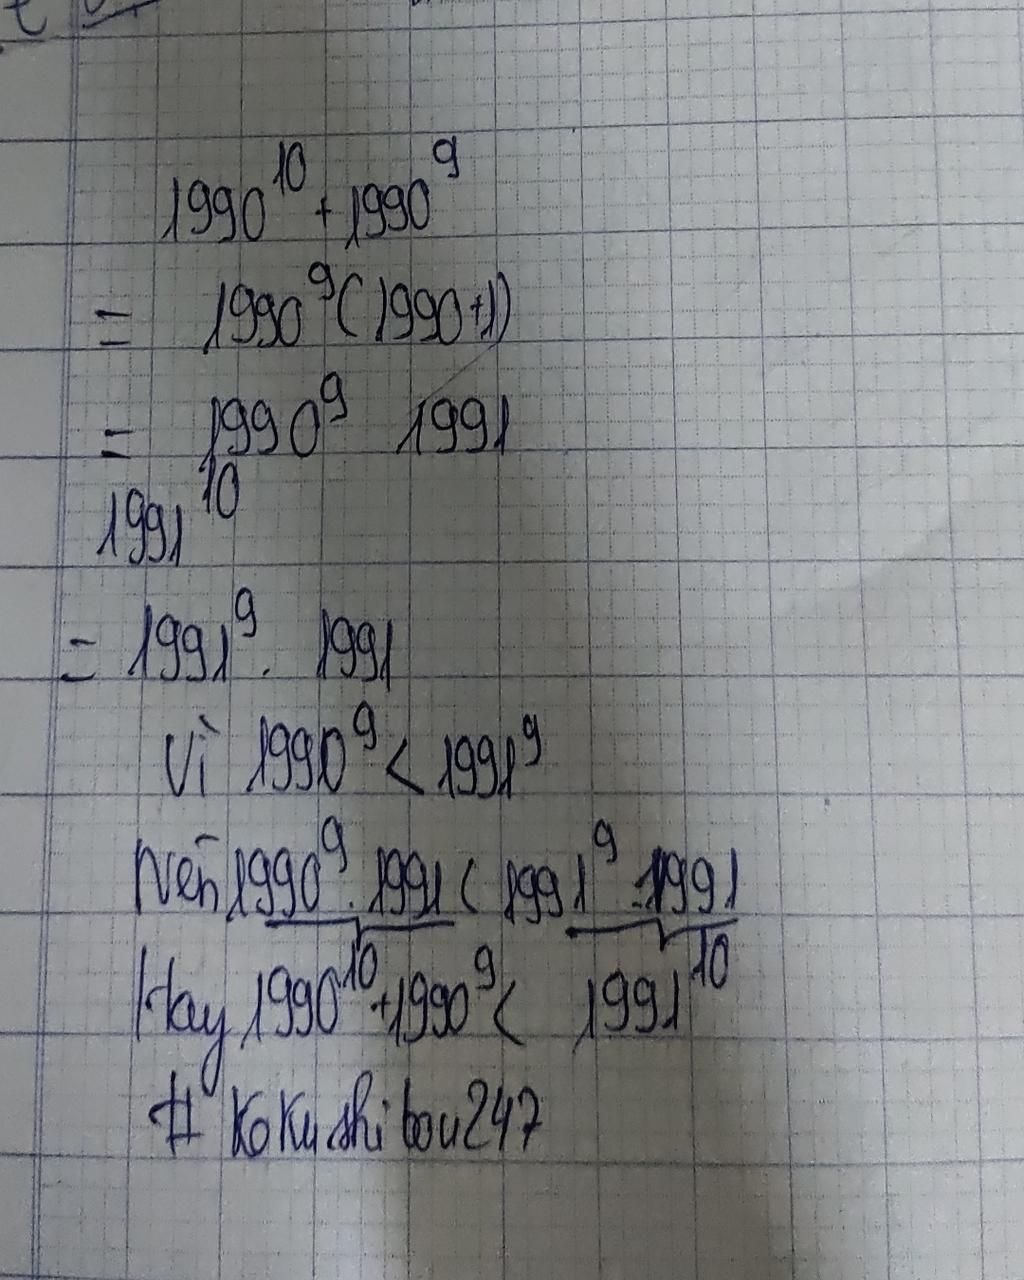 1990^10 + 1990^9
= 1990^9 (1990+1)
= 1990^9 1991
1991^10
= 1991^9 . 1991
Vì 1990^9 < 1991^9
Nên 1990^9 . 1991 < 1991^9 . 1991
Hay 1990^10 + 1990^9 < 1991^10
# Kokushibou247